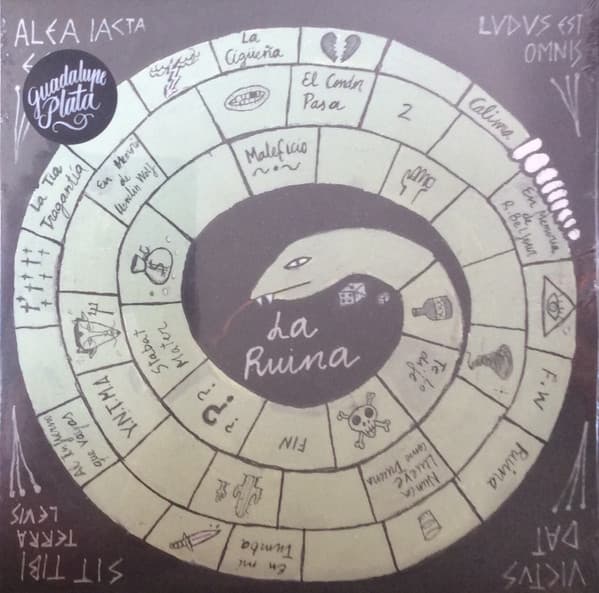 ALEA IACTA
E
guadalupe
Plata
LVDVS EST
OMNIS
La
Cigüeña
El Condor
Pasa
2
Calima
Maleficio
La Tia
Tragantía
En Memoria
de
Wolf
En Memoria
de
R. Belfour
Stabat
Mater
La
Ruina
Te lo
dije
F.W
Y.N.T.M.A
Al Infierno
que Vayas
¿?
?
FIN
Nunca
Llueve
como Truena
Ruina
En mi
Tumba
SIT TIBI
TERRA
LEVIS
VICTVS
DAT